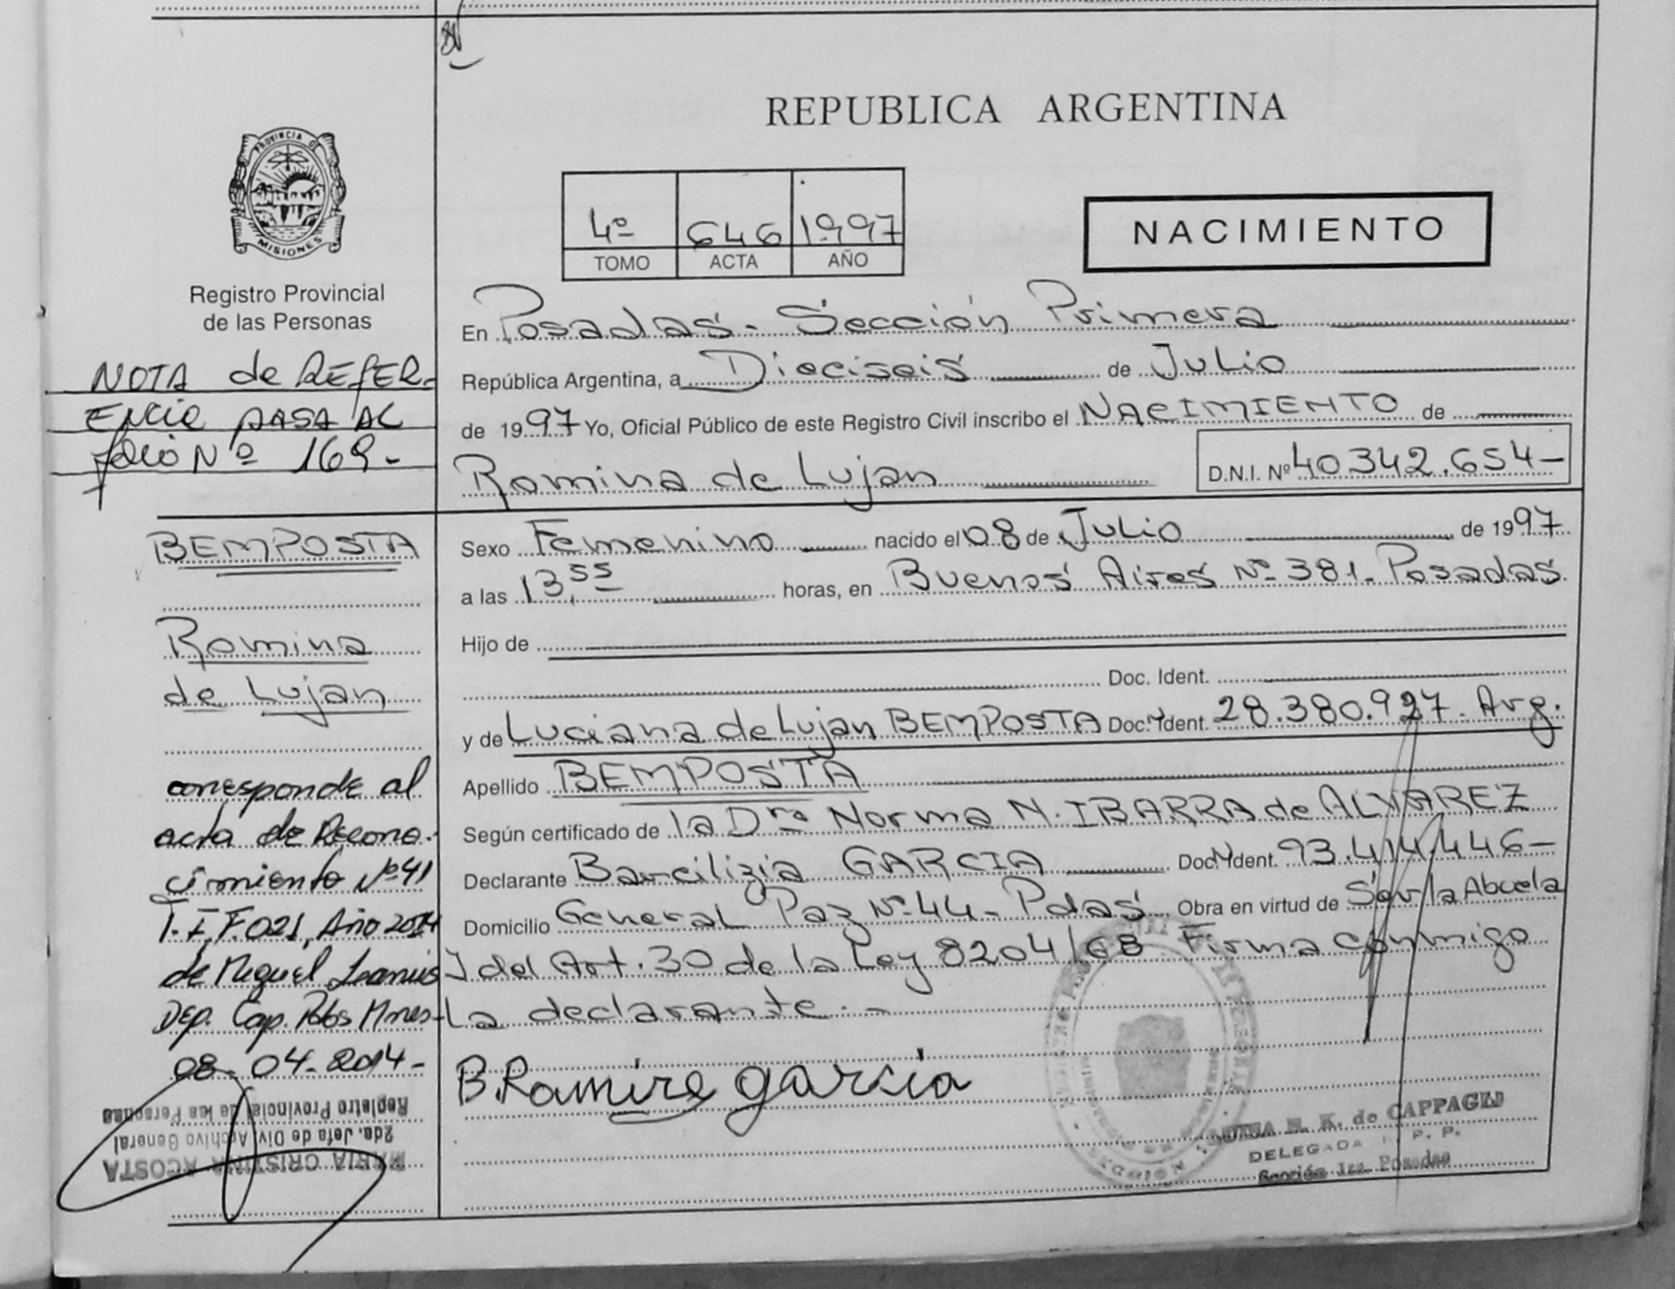 REPUBLICA ARGENTINA
PROVINCIA D
MISIONES
Registro Provincial
de las Personas
4º 646 1997
TOMO ACTA AÑO
NACIMIENTO
NOTA de REFER-
ENCIA PASA AL
folio Nº 169-
En Posadas - Sección Primera
República Argentina, a Dieciseis de Julio
de 1997 Yo, Oficial Público de este Registro Civil inscribo el NACIMIENTO de
Romina de Lujan D.N.I. Nº 40.342.654-
BEMPOSTA
Romina
de Lujan
corresponde al
acta de Recono-
cimiento Nº 41
T. I, F. 021, Año 2014
de Miguel
Dep. Cap. Pdas Mnes-
08-04-2014-
MARIA CRISTINA ACOSTA
2da. Jefa de Div Archivo General
Registro Provincial de las Personas
Sexo Femenino nacido el 08 de Julio de 1997
a las 13,55 horas, en Buenos Aires Nº 381- Posadas
Hijo de
Doc. Ident.
y de Luciana de Lujan BEMPOSTA Doc. Ident. 28.380.927. Arg.
Apellido BEMPOSTA
Según certificado de la Dra Norma N. IBARRA de ALVAREZ
Declarante Barcilizia GARCIA Doc. Ident. 93.414.446-
Domicilio General Paz Nº 44- Pdas Obra en virtud de Ser la Abuela
J del Art. 30 de la Ley 8204/68 Firma conmigo
La declarante.-
B. Ramire garcia
R. K. de CAPPAGLI
DELEGADA R. P. P.
Sección 1ra. Posadas